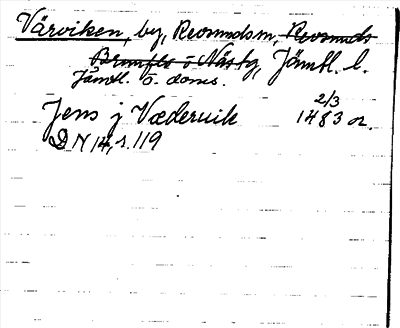 Värviken, by, Revsundsn, Revsunds
Brunflo o Näs tg, Jämtl. l.
Jämtl. ö. doms.
Jens j Vædervik 2/3 1483 or.
DN 14, s. 119